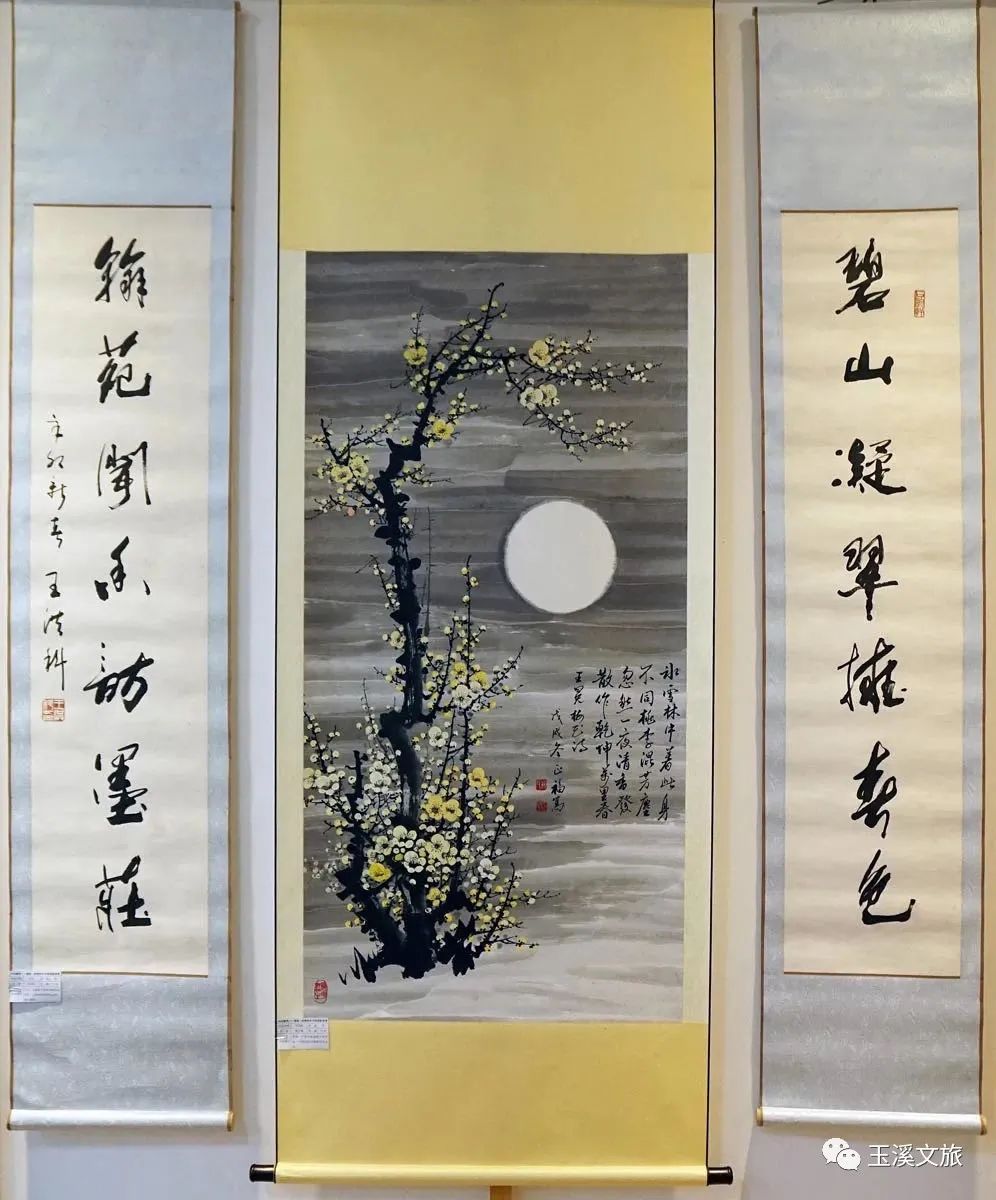 碧山凝翠擁春色
冰雪林中著此身
不同桃李混芳塵
忽然一夜清香發
散作乾坤萬里春
王冕梅花詩
戊戌冬正福寫
翰苑聞香訪墨莊
辛卯新春 王洪科
玉溪文旅